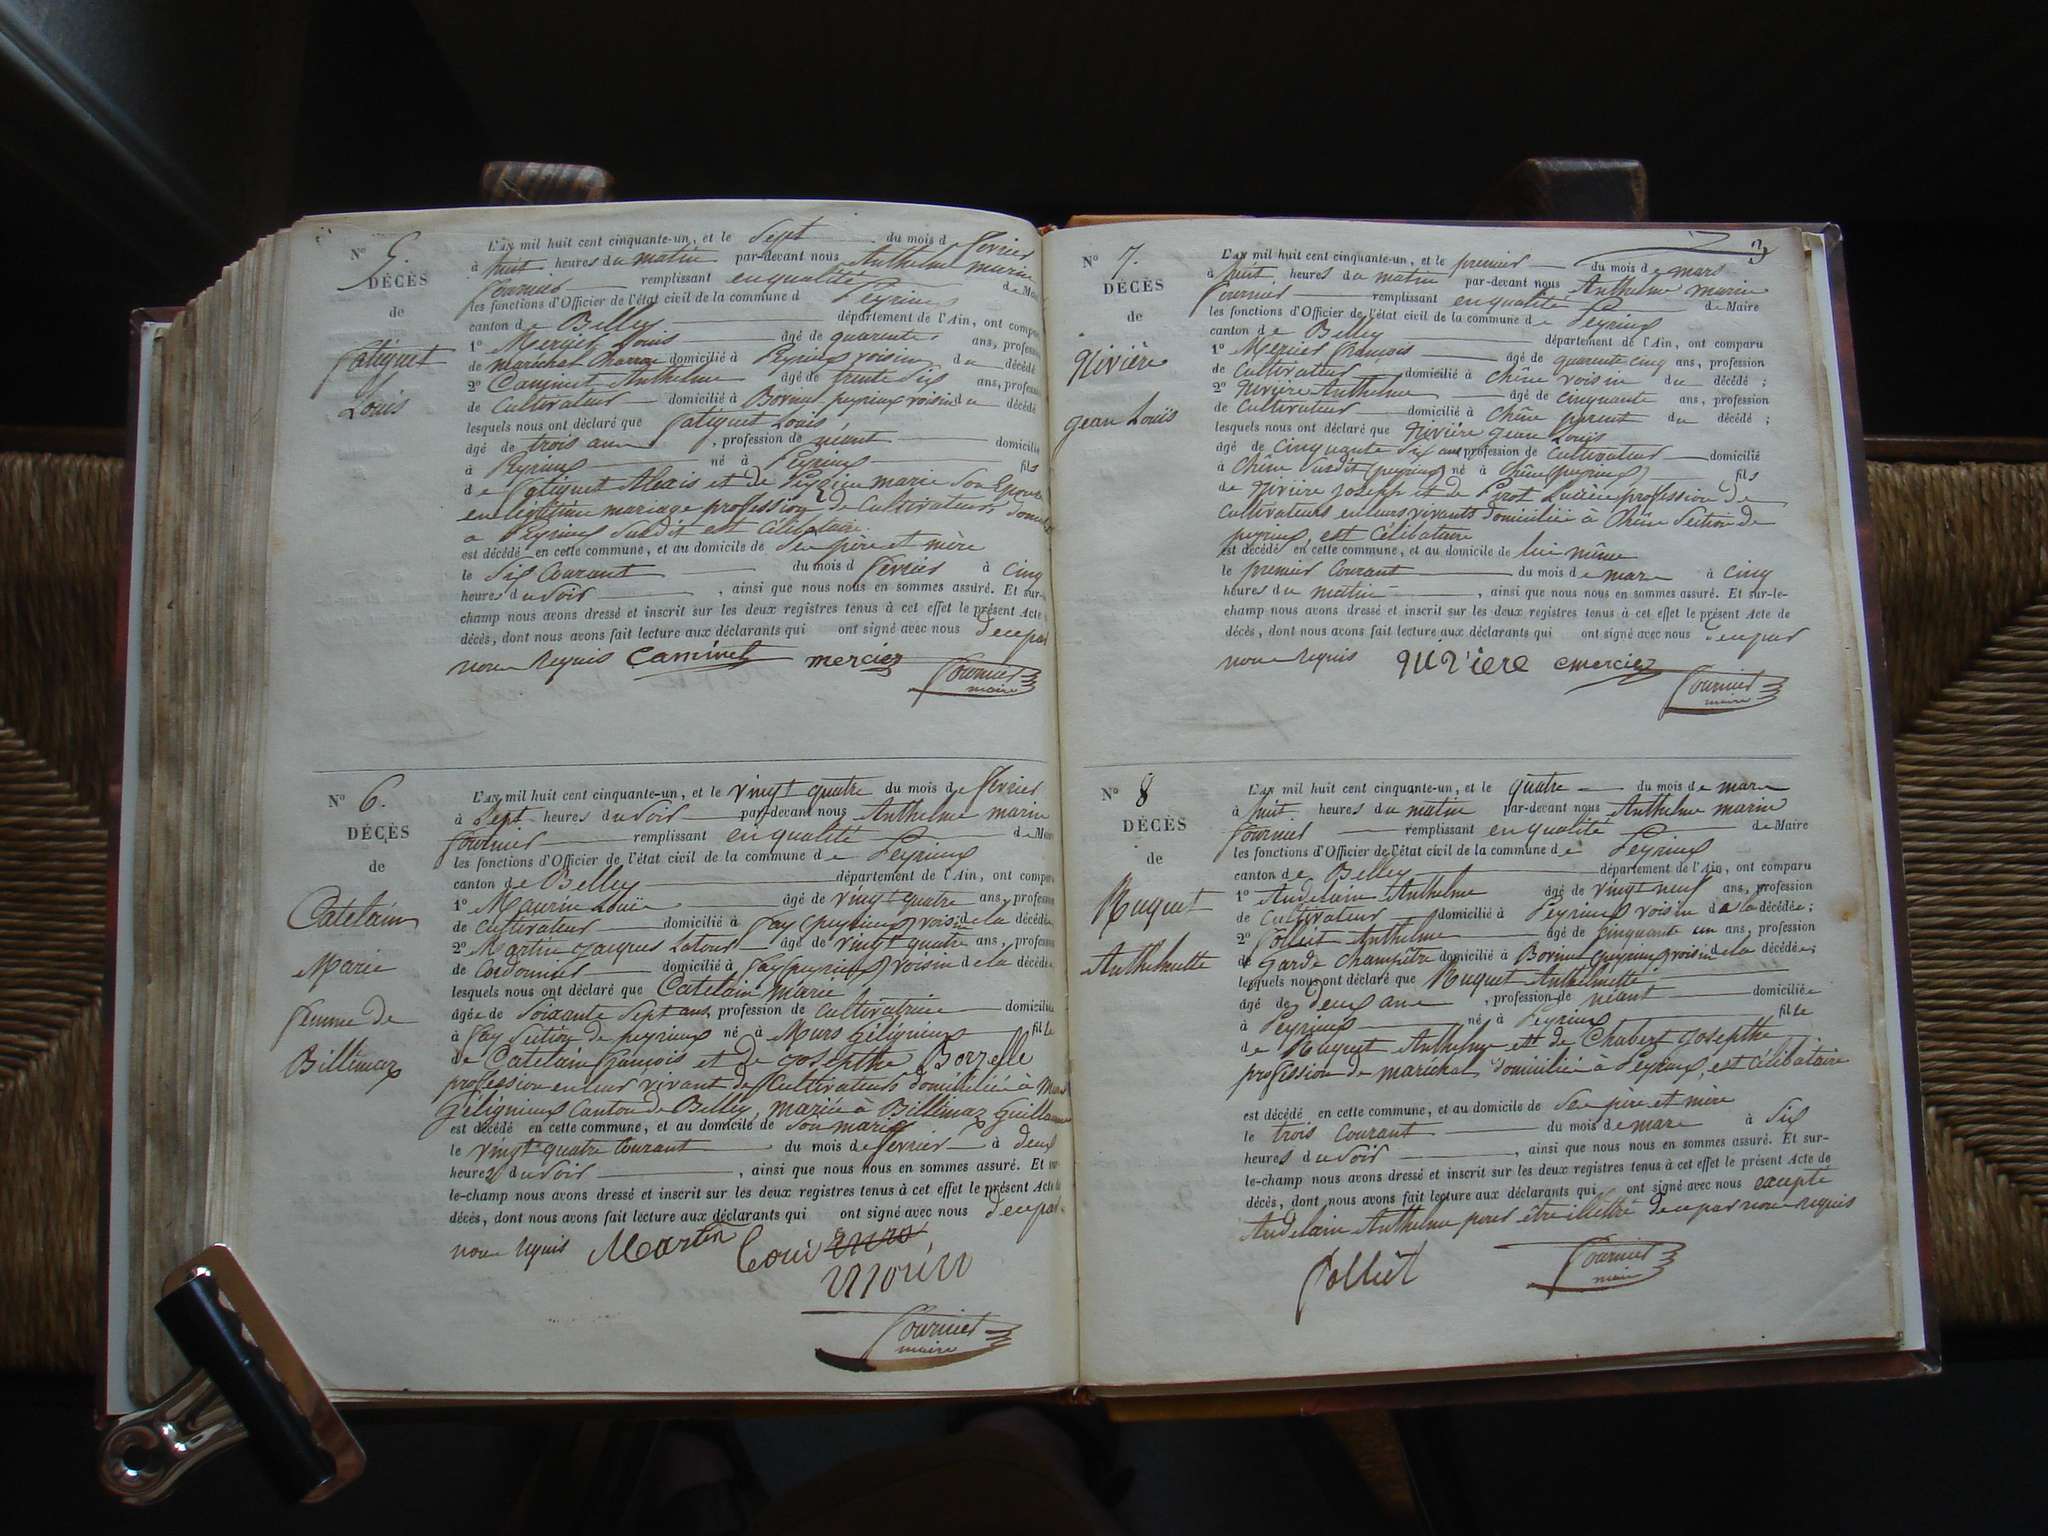 N° 5.
DÉCÈS
de
Gatiguet
Louis
L'AN mil huit cent cinquante-un, et le Sept du mois d fevrier
à huit heures du matin par-devant nous Anthelme marin
fournier remplissant en qualité de Maire
les fonctions d'Officier de l'état civil de la commune d Peyrieux
canton de Belley département de l'Ain, ont compar
1° Mercier Louis âgé de quarente ans, profession
de maréchal charron domicilié à Peyrieux voisin du décédé
2° Canninet Anthelme âgé de trente Six ans, profession
de Cultivateur domicilié à Bornet peyrieux voisin du décédé
lesquels nous ont déclaré que Gatiguet Louis
âgé de trois ans , profession de néant domicilié
à Peyrieux né à Peyrieux fils
de Gatiguet Alexis et de marie Son Epouse
en légitime mariage profession de Cultivateurs
a Peyrieux Susdit est Célibataire.
est décédé en cette commune, et au domicile de Ses père et mère
le Six Courant du mois d fevrier à cinq
heures du Soir , ainsi que nous nous en sommes assuré. Et sur-
champ nous avons dressé et inscrit sur les deux registres tenus à cet effet le présent Acte
décès, dont nous avons fait lecture aux déclarants qui ont signé avec nous de ce par
nous Requis Caminet mercier fournier
maire
N° 6.
DÉCÈS
de
Catelain
Marie
femme de
Billimaz
L'AN mil huit cent cinquante-un, et le vingt quatre du mois de fevrier
à Sept heures du Soir par-devant nous Anthelme marin
fournier remplissant en qualité de Maire
les fonctions d'Officier de l'état civil de la commune de Peyrieux
canton de Belley département de l'Ain, ont compar
1° Maurin Louis âgé de vingt quatre ans, profession
de Cultivateur domicilié à Fay (peyrieux) voisin de la décédée
2° Martin Jacques Latour âgé de vingt quatre ans, profession
de Cordonnier domicilié à Fay (peyrieux) voisin de la décédée
lesquels nous ont déclaré que Catelain Marie
âgée de Soixante Sept ans, profession de Cultivatrice domiciliée
à Fay Section de peyrieux né à Murs Gélignieux fille
de Catelain françois et de Josepthe Borzelle
profession en leur vivant de Cultivateurs domiciliés à Murs
Gélignieux Canton de Belley, mariée à Billimaz Guillaume
est décédé en cette commune, et au domicile de Son mari
le vingt quatre Courant du mois de fevrier à deux
heures du Soir , ainsi que nous nous en sommes assuré. Et sur
le-champ nous avons dressé et inscrit sur les deux registres tenus à cet effet le présent Acte de
décès, dont nous avons fait lecture aux déclarants qui ont signé avec nous de ce par
nous Requis Martin Loui
Morin
fournier
maire
3
N° 7.
DÉCÈS
de
Nivière
Jean Louis
L'AN mil huit cent cinquante-un, et le premier du mois de mars
à huit heures du matin par-devant nous Anthelme marin
fournier remplissant en qualité de Maire
les fonctions d'Officier de l'état civil de la commune de Peyrieux
canton de Belley département de l'Ain, ont comparu
1° Mercier françois âgé de quarente cinq ans, profession
de Cultivateur domicilié à Chêne voisin du décédé ;
2° Nivière Anthelme âgé de cinquante ans, profession
de Cultivateur domicilié à Chêne parent du décédé ;
lesquels nous ont déclaré que Nivière Jean Louis
âgé de cinquante Six ans profession de Cultivateur domicilié
à Chêne Susdit (peyrieux) né à Chêne (peyrieux) fils
de Nivière Joseph et de Pirot profession de
Cultivateurs en leurs vivants domiciliés à Chêne Section de
peyrieux, est Célibataire
est décédé en cette commune, et au domicile de lui même
le premier Courant du mois de mars à cinq
heures du matin , ainsi que nous nous en sommes assuré. Et sur-le-
champ nous avons dressé et inscrit sur les deux registres tenus à cet effet le présent Acte de
décès, dont nous avons fait lecture aux déclarants qui ont signé avec nous de ce par
nous Requis Nivière mercier
fournier
maire
N° 8
DÉCÈS
de
Ruguet
Anthelmette
L'AN mil huit cent cinquante-un, et le quatre du mois de mars
à huit heures du matin par-devant nous Anthelme marin
fournier remplissant en qualité de Maire
les fonctions d'Officier de l'état civil de la commune de Peyrieux
canton de Belley département de l'Ain, ont comparu
1° Andelain Anthelme âgé de vingt neuf ans, profession
de Cultivateur domicilié à Peyrieux voisin de la décédée ;
2° Folliet Anthelme âgé de cinquante un ans, profession
de Garde Champêtre domicilié à Bornet (peyrieux) voisin de la décédée ;
lesquels nous ont déclaré que Ruguet Anthelmette
âgé de deux ans , profession de néant domiciliée
à Peyrieux né à Peyrieux fille
de Ruguet Anthelme et de Chabert Josepthe
profession de maréchal domiciliés à Peyrieux, est Célibataire
est décédé en cette commune, et au domicile de Ses père et mère
le trois Courant du mois de mars à Six
heures du Soir , ainsi que nous nous en sommes assuré. Et sur-
le-champ nous avons dressé et inscrit sur les deux registres tenus à cet effet le présent Acte de
décès, dont nous avons fait lecture aux déclarants qui ont signé avec nous excepté
Andelain Anthelme pour être illettré de ce par nous requis
Folliet fournier
maire